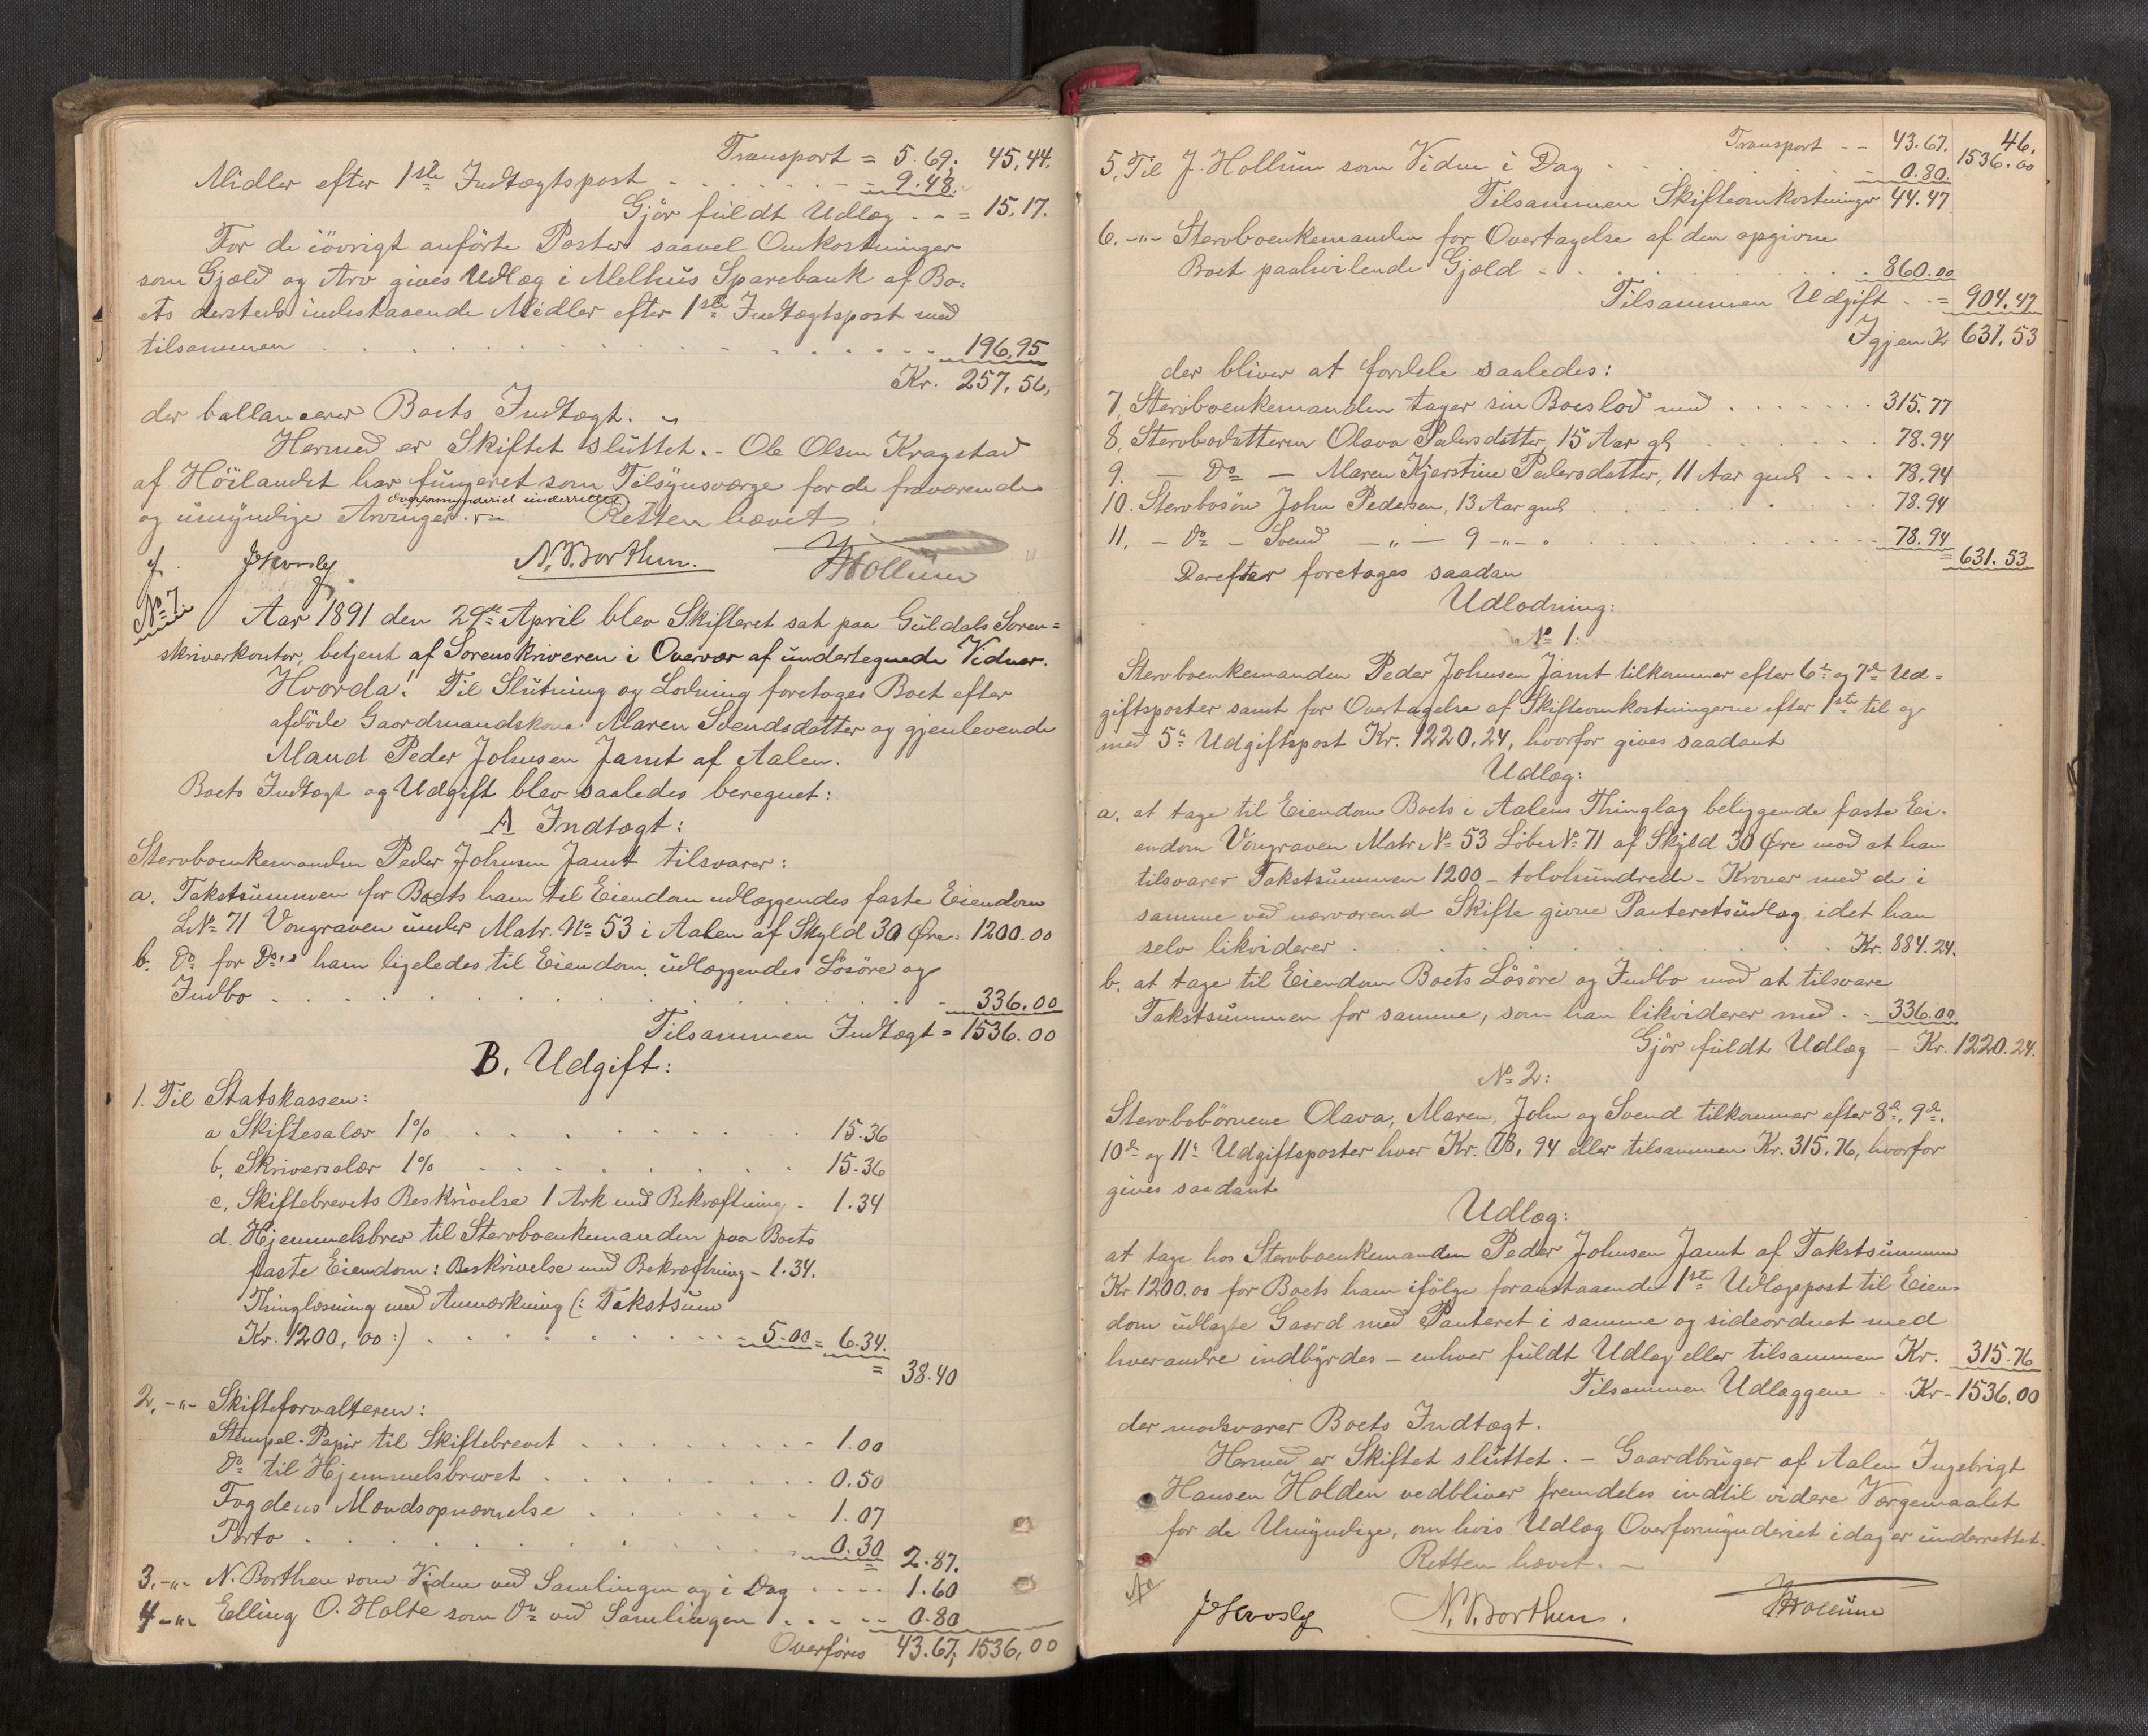 Transport = 5.69; 45,44.
Midler efter 1ste Indtægtspost . . . . . . . - 9.48.
Gjør fuldt Udlæg . - = 15,17.
For de iøvrigt anførte Poster saavel Omkostninger
som Gjæld og Arv gives Udlæg i Melhus Sparebank af Bo=
ets dersteds indestaaende Midler efter 1ste Indtægtspost med
tilsammen . . . . . . . . . . . . 196,95
Kr. 257,56,
der ballancerer Boets Indtægt. „
Hermed er Skiftet sluttet. - Ole Olsen Kragstad
af Höilandet har fungeret som Tilsynsværge for de fraværende
og umyndige Arvinger. Overformynderiet underrettet Retten hævet
N. Borthen. Hollum
No 7. Aar 1891 den 29de April blev Skifteret sat paa Guldals Soren=
skriverkontor, betjent af Sorenskriveren i Overvær af undertegnede Vidner.
Hvorda! Til Slutning og Lodning foretoges Boet efter
afdøde Gaardmandskone Maren Svendsdatter og gjenlevende
Mand Peder Johnsen Jamt af Aalen.
Boets Indtægt og Udgift blev saaledes beregnet:
A Indtægt:
Stervboenkemanden Peder Johnsen Jamt tilsvarer:
a. Takstsummen for Boets ham til Eiendom udlæggendes faste Eiendom
LNo 71 Vongraven under Matr. No 53 i Aalen af Skyld 30 Øre. 1200.00
b. Do for Do's ham ligeledes til Eiendom udlæggendes Løsøre og
Indbo . . . . . . . . . . . . . 336.00
Tilsammen Indtægt = 1536.00
B. Udgift:
1. Til Statskassen:
a Skiftesalær 1% . . . . . . . . 15.36
b, Skriversalær 1% . . . . . . . . 15.36
c, Skiftebrevets Beskrivelse 1 Ark med Bekræftning - 1.34
d. Hjemmelsbrev til Stervboenkemanden paa Boets
faste Eiendom: Beskrivelse med Bekræftning - 1.34.
Thinglæsning med Anmærkning (: Takstsum
Kr. 1200,00 :) . . . . . . . . 5.00 = 6.34.
= 38.40
2, -"- Skifteforvalteren:
Stempel-Papir til Skiftebrevet . . . . . . . 1.00
Do til Hjemmelsbrevet . . . . . . . 0.50
Fogdens Mændsopnævnelse . . . . . . 1.07
Porto . . . . . . . . . . 0.30 2.87.
3. -"- N. Borthen som Vidne ved Samlingen og i Dag . . . . 1.60
4 -"- Elling O. Holte som Do ved Samlingen . . . . . 0.80
Overføres 43.67, 1536,00
46.
Transport - - 43.67. 1536.00
5, Til J. Hollum som Vidne i Dag . . . . . . - 0.80.
Tilsammen Skifteomkostninger 44.47
6. -"- Stervboenkemanden for Overtagelse af den opgivne
Boet paahvilende Gjæld . . . . . . . . 860.00
Tilsammen Udgift . . = 904.47
Igjen Kr 631,53
der bliver at fordele saaledes:
7, Stervboenkemanden tager sin Boeslod med . . . . . . . 315.77
8, Stervbodatteren Olava Pedersdatter, 15 Aar gl . . . . . . 78.94
9. - Do - Maren Kjerstine Pedersdatter, 11 Aar gml . . . 78,94
10. Stervbosøn John Pedersen, 13 Aar gml . . . . . . . 78.94
11, - Do - Svend - " - 9 - " - . . . . . . . . 78.94
= 631.53
Derefter foretoges saadan
Udlodning:
No 1:
Stervboenkemanden Peder Johnsen Jamt tilkommer efter 6te og 7de Ud=
giftsposter samt for Overtagelse af Skifteomkostningerne efter 1ste til og
med 5te Udgiftspost Kr. 1220,24, hvorfor gives saadant
Udlæg:
a. at tage til Eiendom Boets i Aalens Thinglag beliggende faste Ei-
endom Vongraven Matr No 53 Løbe No 71 af Skyld 30 Øre mod at han
tilsvarer Takstsummen 1200 - tolvhundrede - Kroner med de i
samme ved nærværende Skifte givne Panteretsudlæg, idet han
selv likviderer . . . . . . . . . . Kr. 884.24.
b. at tage til Eiendom Boets Løsøre og Indbo mod at tilsvare
Takstsummen for samme, som han likviderer med . - 336.00
Gjør fuldt Udlæg - Kr. 1220.24.
No 2:
Stervbobørnene Olava, Maren, John og Svend tilkommer efter 8de, 9de,
10de og 11te Udgiftsposter hver Kr. 78,94 eller tilsammen Kr. 315,76, hvorfor
gives saadant
Udlæg:
at tage hos Stervboenkemanden Peder Johnsen Jamt af Takstsummen
Kr 1200.00 for Boets ham ifølge foranstaaende 1ste Udlægspost til Eien-
dom udlagte Gaard med Panteret i samme og sideordnet med
hverandre indbyrdes - enhver fuldt Udlæg eller tilsammen Kr. 315.76
Tilsammen Udlæggene - Kr - 1536.00
der modsvarer Boets Indtægt.
Hermed er Skiftet sluttet. - Gaardbruger af Aalen Ingebrigt
Hansen Holden vedbliver fremdeles indtil videre Værgemaalet
for de Umyndige, om hvis Udlæg Overformynderiet idag er underrettet.
Retten hævet. -
N. Borthen. Hollum